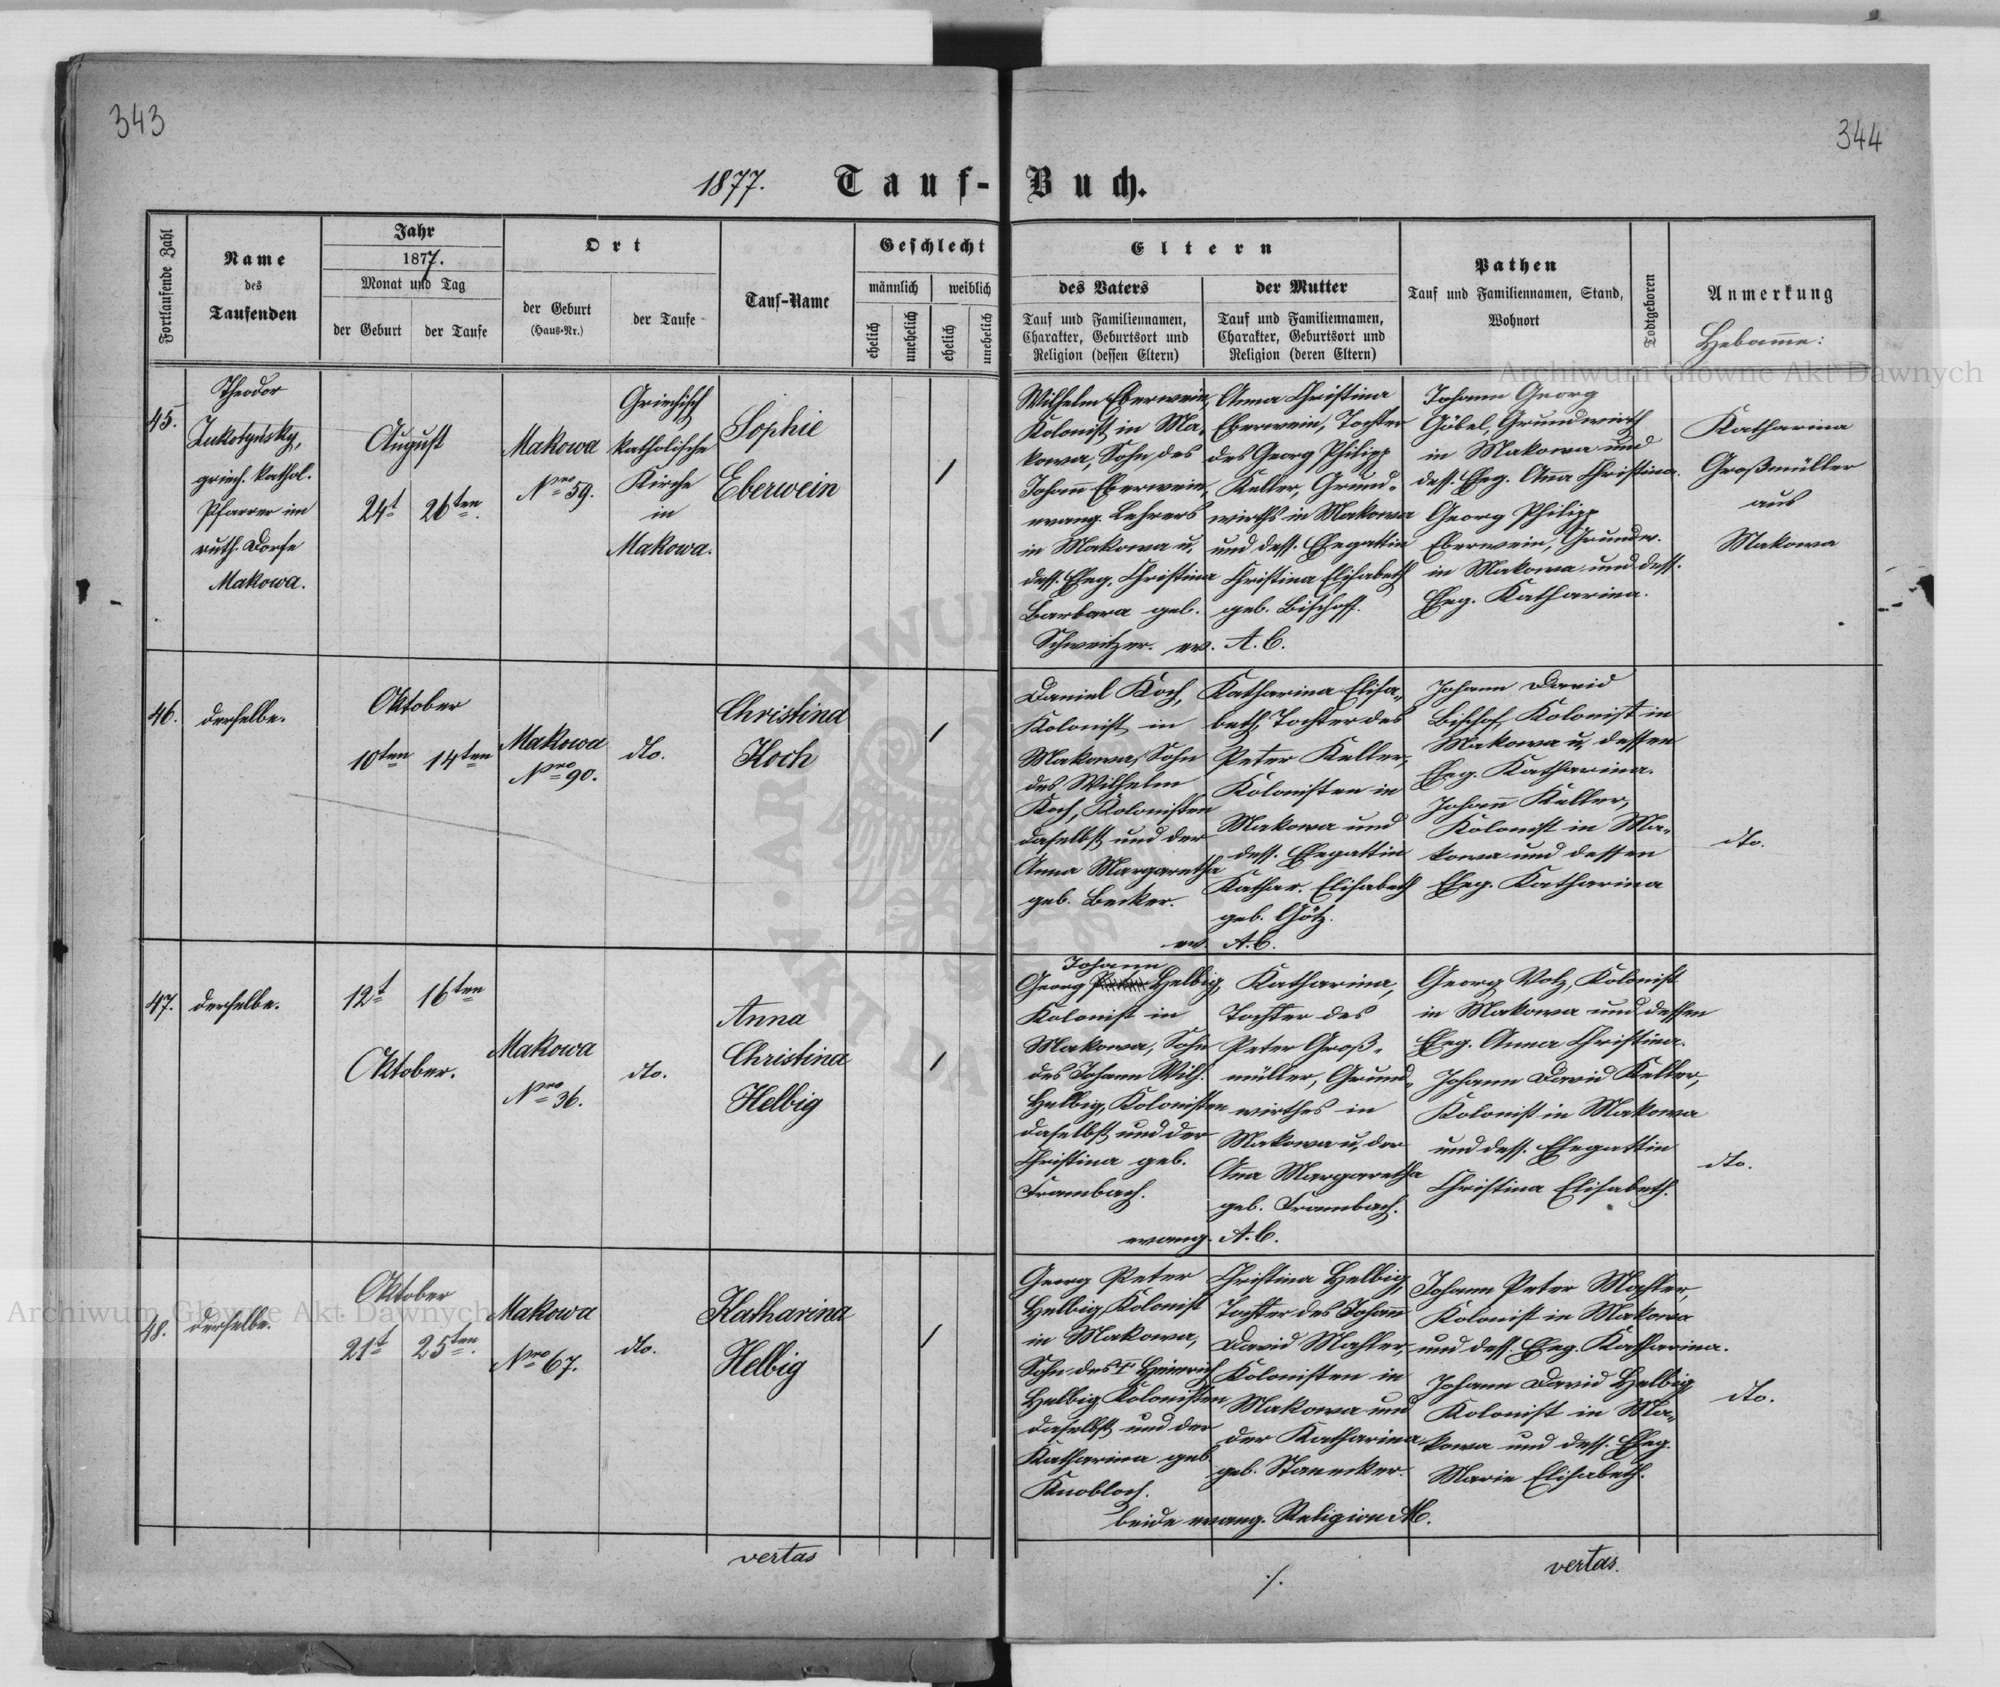 343
344
1877. Tauf-Buch.
Fortlaufende Zahl
Name
des
Taufenden
Jahr
1877.
Monat und Tag
der Geburt
der Taufe
Ort
der Geburt
(Haus-Nr.)
der Taufe
Tauf-Name
Geschlecht
männlich
weiblich
ehelich
unehelich
ehelich
unehelich
Eltern
des Vaters
Tauf und Familiennamen,
Charakter, Geburtsort und
Religion (dessen Eltern)
der Mutter
Tauf und Familiennamen,
Charakter, Geburtsort und
Religion (deren Eltern)
Pathen
Tauf und Familiennamen, Stand,
Wohnort
Todtgeboren
Anmerkung
Hebamme:
45.
Theodor
griech. kathol.
Pfarrer im
ruth. Dorfe
Makowa.
August
24t 26ten
Makowa
Nro 59.
Griechisch
katholische
Kirche
in
Makowa.
Sophie
Eberwein
/
Wilhelm Eberwein,
Kolonist in Ma-
kowa, Sohn des
Johann Eberwein,
evang. Lehrers
in Makowa u.
dess. Eheg. Christina
Barbara geb.
Schweitzer. ev. A. C.
Anna Christina
Eberwein, Tochter
des Georg Philipp
Keller, Grund-
wirths in Makowa
und dess. Ehegattin
Christina Elisabeth
geb. Bischoff.
Johann Georg
Göbel, Grundwirth
in Makowa und
dess. Eheg. Anna Christina.
Georg Philipp
Eberwein, Grundw.
in Makowa und dess.
Eheg. Katharina.
Katharina
Großmüller
aus
Makowa
46.
derselbe.
Oktober
10ten 14ten
Makowa
Nro 90.
dto.
Christina
Koch
/
Daniel Koch,
Kolonist in
Makowa, Sohn
des Wilhelm
Koch, Kolonisten
daselbst und der
Anna Margaretha
geb. Becker.
Katharina Elisa-
beth, Tochter des
Peter Keller,
Kolonisten in
Makowa und
dess. Ehegattin
Kathar. Elisabeth
geb. Götz.
ev. A. C.
Johann David
Bischof, Kolonist in
Makowa u. dessen
Eheg. Katharina.
Johann Keller,
Kolonist in Ma-
kowa und dessen
Eheg. Katharina
dto.
47.
derselbe.
12t 16ten
Oktober.
Makowa
Nro 36.
dto.
Anna
Christina
Helbig
/
Johann
Georg Helbig,
Kolonist in
Makowa, Sohn
des Johann Wilh.
Helbig, Kolonisten
daselbst und der
Christina geb.
Trambach.
Katharina,
Tochter des
Peter Groß-
müller, Grund-
wirthes in
Makowa u. der
Anna Margaretha
geb. Trambach.
evang. A. C.
Georg Volz, Kolonist
in Makowa und dessen
Eheg. Anna Christina.
Johann David Keller,
Kolonist in Makowa
und dess. Ehegattin
Christina Elisabeth.
dto.
48.
derselbe.
Oktober
21t 25ten
Makowa
Nro 67.
dto.
Katharina
Helbig
/
Georg Peter
Helbig, Kolonist
in Makowa,
Sohn des † Heinrich
Helbig, Kolonisten
daselbst und der
Katharina geb.
Knobloch.
Christina Helbig,
Tochter des Johann
David Mahler,
Kolonisten in
Makowa und
der Katharina
geb. Stanecker.
beide evang. Religion
Johann Peter Mahler,
Kolonist in Makowa
und dess. Eheg. Katharina.
Johann David Helbig
Kolonist in Ma-
kowa und dess. Eheg.
Marie Elisabeth.
dto.
vertas
./.
vertas.
Archiwum Główne Akt Dawnych
Archiwum Główne Akt Dawnych